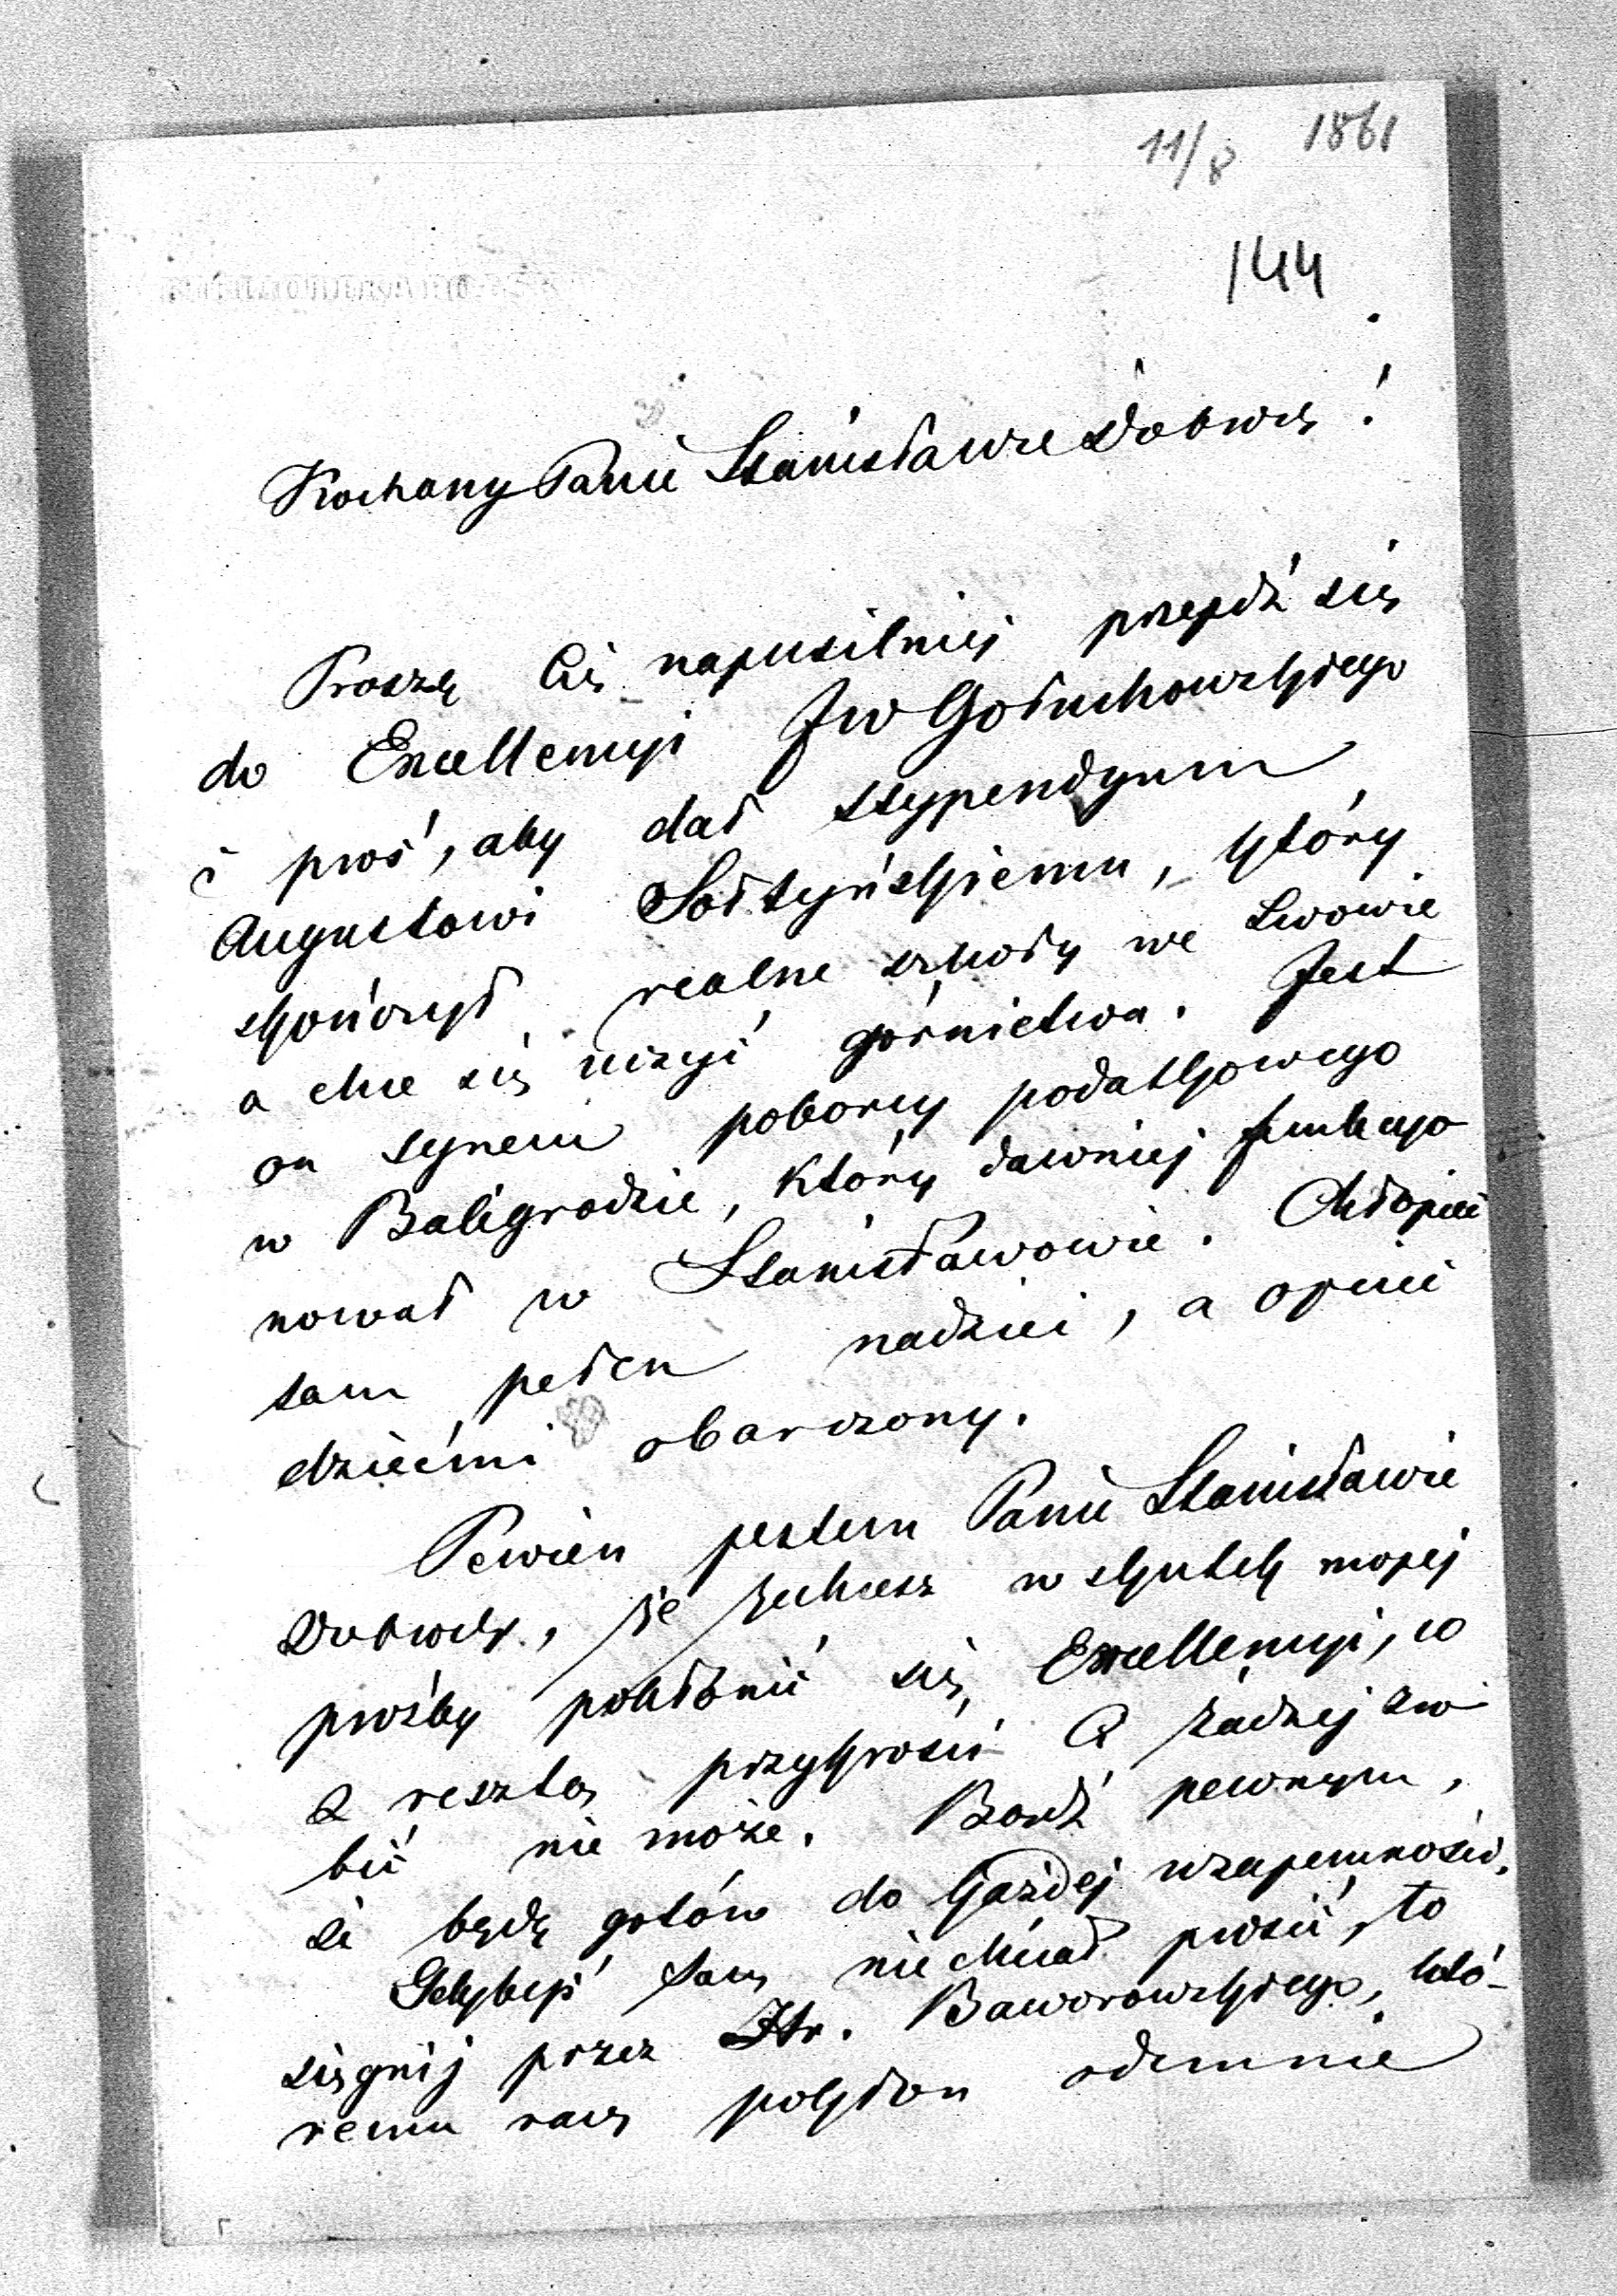 11/8 1861
144
Kochany Panie Stanisławie Dobrodz!
Proszę Cię najusilniej przejdź się
do Excellencyi JW Gołuchowskiego
i proś, aby dał stypendyum
Augustowi Sołtyńskiemu, który
skończył realne szkoły we Lwowie
a chce się uczyć górnictwa. Jest
on synem poborcy podatkowego
w Baligrodzie, który dawniej funkcyo
nował w Stanisławowie. Chłopiec
sam pełen nadziei, a ojciec
dziećmi obarczony.
Pewien jestem Panie Stanisławie
Dobrodz., że zechcesz w skutek mojej
prośby pokłonić się Excellencyi, co
z resztą przykrości Ci żadnej zro
bić nie może. Bądź pewnym,
że będę gotów do każdej wzajemności.
Gdybyś sam nie chciał prosić, to
sięgnij przez Hr. Baworowskiego, któ-
remu racz pokłon odemnie